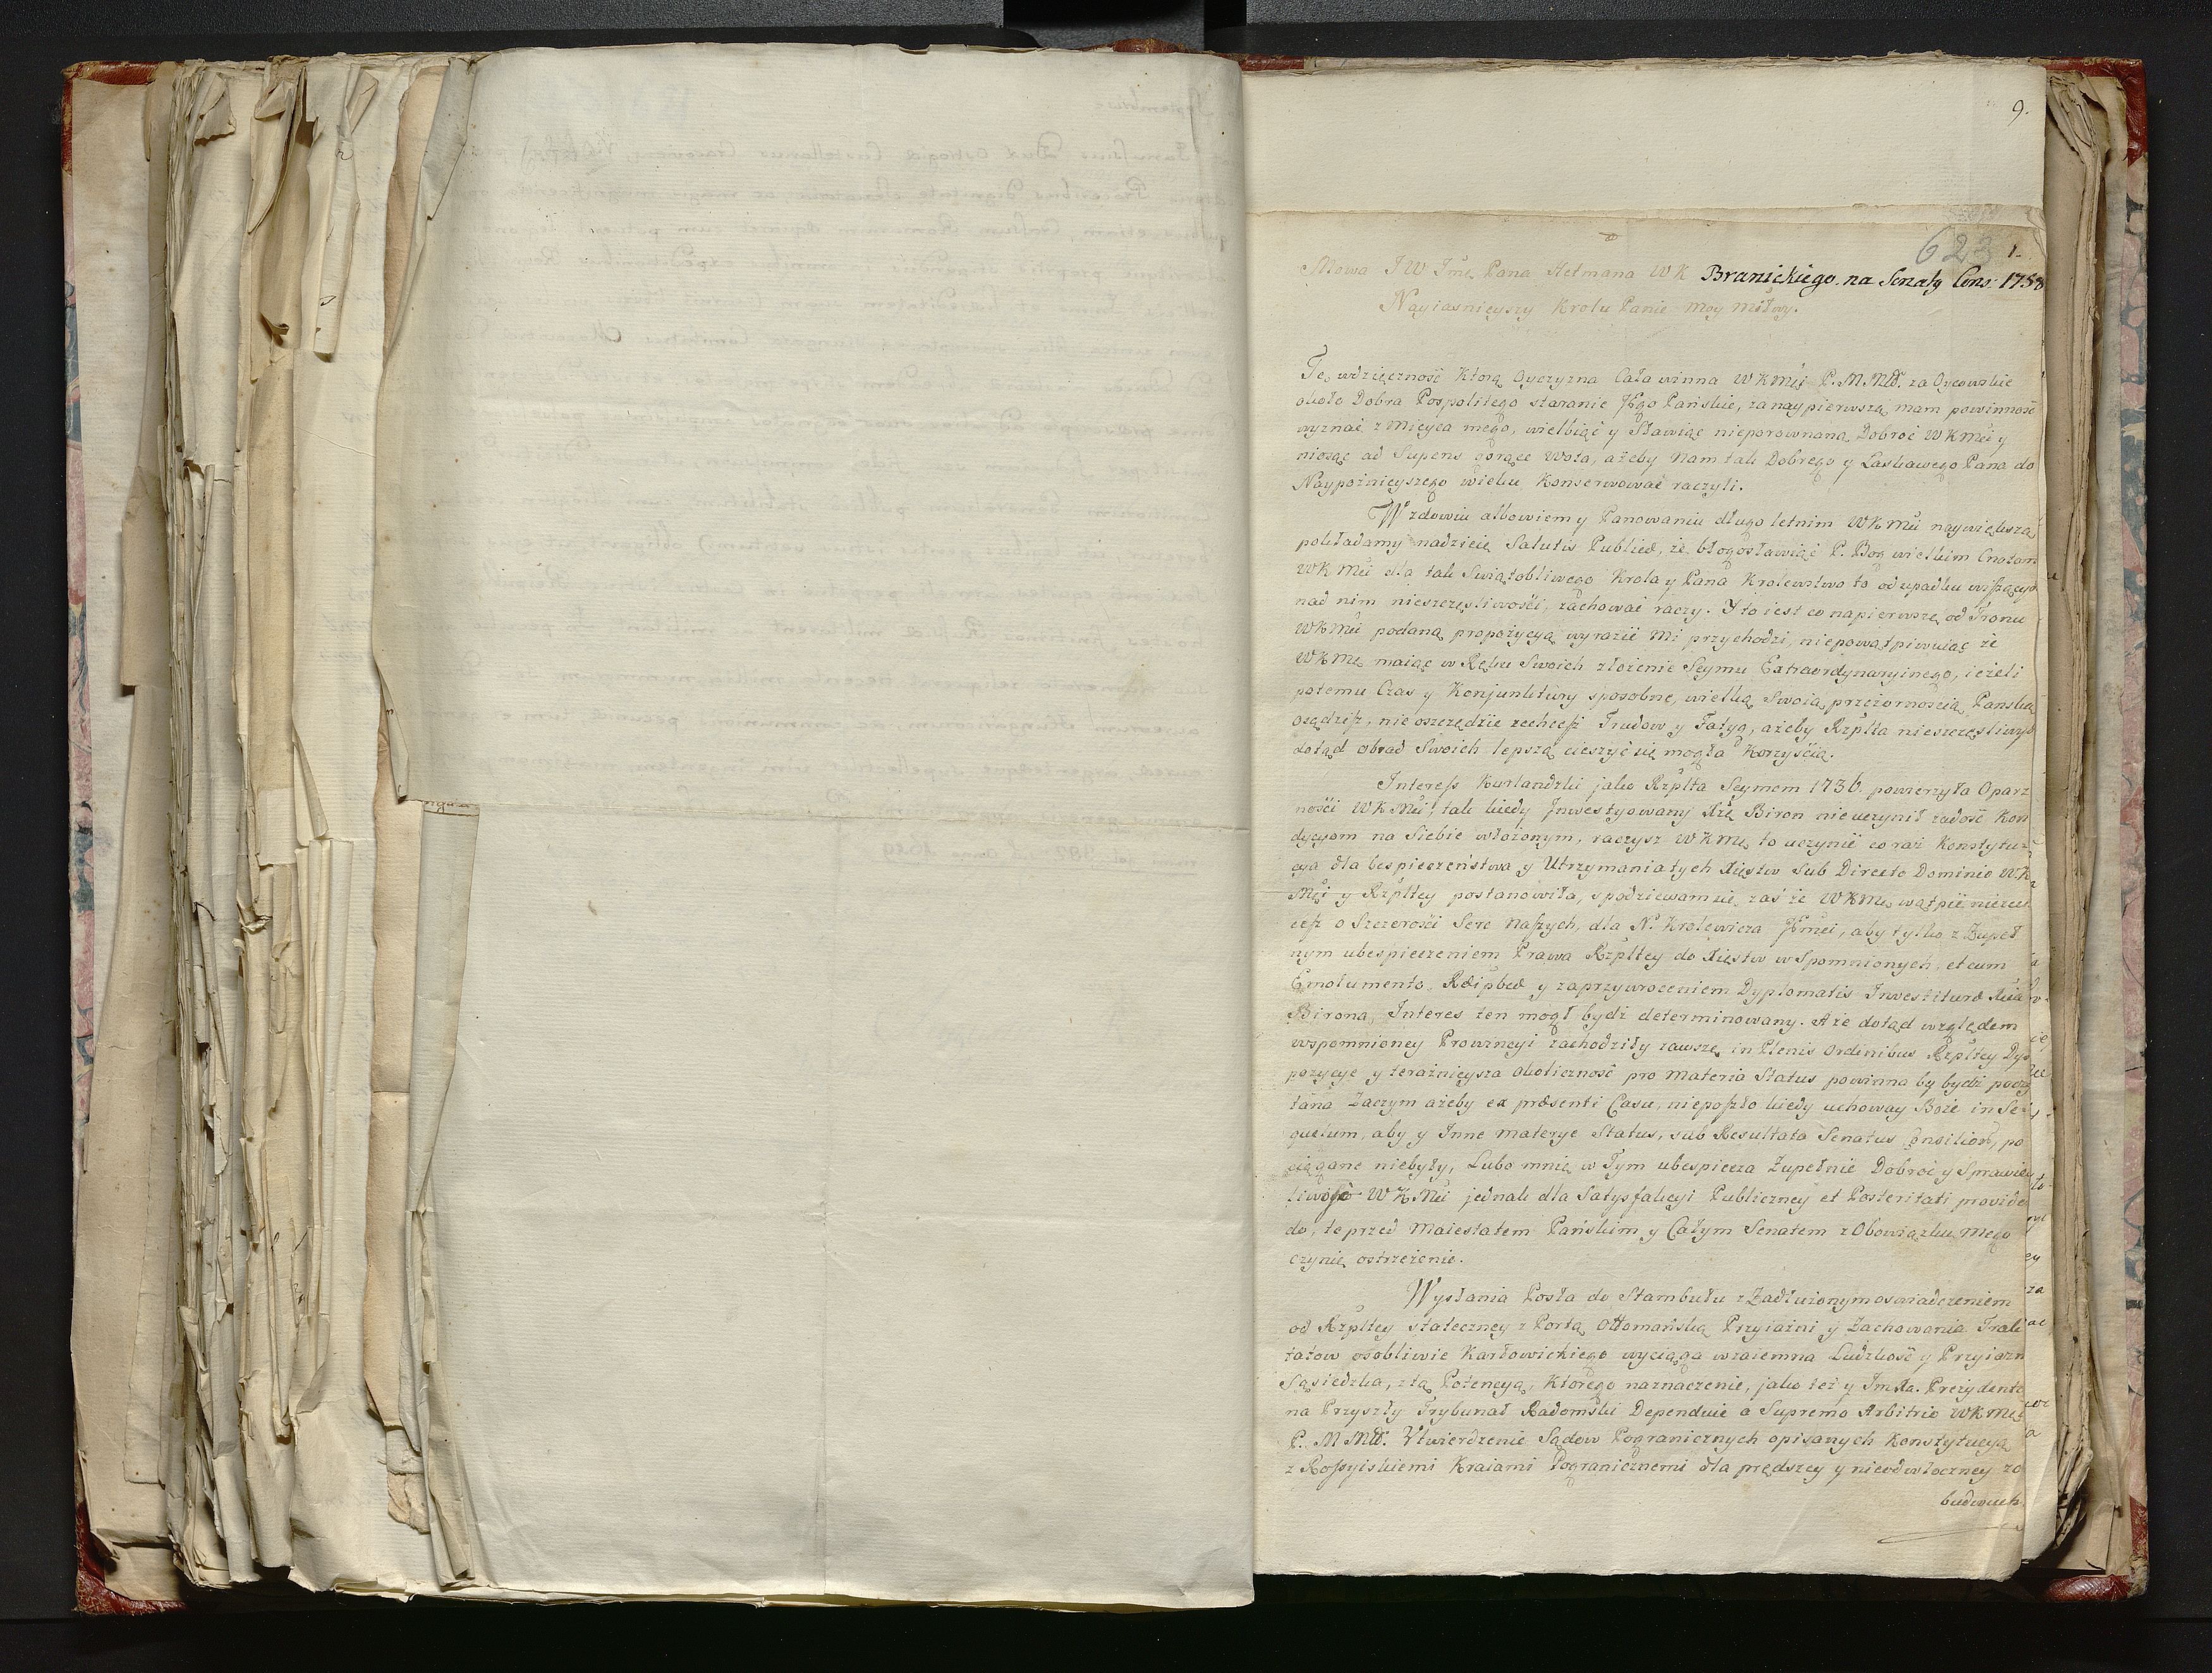 9.
623 1.
Mowa JW Jmć Pana Hetmana WK Branickiego na Senatg Cons: 1758
Nayiasnieyszy Krolu Panie moy miłwy.
Tę wdzięczność którą Oyczyzna Cała winna WKMći P.M.Mł. za Oycowskie
około Dobra Pospolitego staranie Jego Pańskie, za naypierwszą mam powinność
wyznać z mieysca mego, wielbiąć y Sławiąc nieporownaną Dobroć WKMći y
niosąc ad Supens gorące wota, ażeby Nam tak Dobrego y Łaskawego Pana do
Naypoźnieyszego wieku Konserwować raczyli.
W zdowiu albowiem y Panowaniu długo letnim WKMći naywiększą
pokładamy nadzieię Salutis Publicæ, że błogosławiąć P. Bog wielkim Cnotom
WKMći dla tak Swiątobliwego Krola y Pana Krolewstwo to od upadku wiszącyh
nad nim nieszczęsliwośći, zachować raczy. Y to iest co napierwszę od Tronu
WKMći podaną propozycyą wyrazić mi przychodzi, niepowątpiwuiąc że
WKMć maiąc w Ręku Swoich złożenie Seymu Extraordynaryinego, ieżeli
potemu Czas y Konjunktury sposobne, wielką Swoią przeżornośćią Pańską
osądzisz, nie oszczędzie zechcesz Trudow y Fatyg, ażeby Rzplta nieszczęsliwych
dotąd obrad Swoich lepszą cieszyć się mogła Korzyśćią.
Interess Kurlandzki jako Rzplta Seymem 1736. powierzyła Opatrz
nośći WKMći, tak kiedy Jnwestyowany Xżę Biron nie uczynił zadość Kon
dycyom na Siebie włożonym, raczysz WKMć to uczynić co raz Konstytu
cya dla bespieczeństwa y Utrzymania tych Xięstw Sub Directo Dominio WK
Mći y Rzpltey postanowiła, spodziewam się zaś że WKMć wątpić niezech
cesz o Szczerośći Serc naszych, dla N. Krolewicza Jmći, aby tylko z Zupeł
nym ubespieczeniem Prawa Rzpltey do Xięstw wspomnionych, et cum
Emolumento Reipbcæ y zaprzywroceniem Dyplomatis Jnvestituræ Xcia
Birona, Interes ten mogł bydź determinowany. A że dotąd względem
wspomnioney Prowincyi zachodziły zawsze, in Plenis Ordinibus Rzpltey Dys
pozycye y teraźnieysza okoliczność pro materia Status powinna by bydź poczy
tána Zaczym ażeby ex præsenti Casu, nieposzło kiedy uchoway Boże in Se
quelum, aby y Jnne materye Status, sub Resultata Senatus Consilior, po
ciągane niebyły, Lubo mnię w Tym ubespiecza Zupełnie Dobroć y Sprawied
liwość WKMći jednak dla Satysfakcyi Publiczney et Posteritati provide
do, te przed Maiestatem Pańskim y Całym Senatem z Obowiązku Mego
czynię ostrzeżenie.
Wysłania Posła do Stambułu z Zadłużonym oswiadczeniem
od Rzpltey stateczney z Portą Ottomańską Przyiaźni y Zachowania Trak
tatow osobliwie Karłowickiego wyciąga wzaiemna Ludzkość y Przyiazń
Sąsiedzka, z tą Potencyą, Ktorego naznaczenie, jako też y Jmxa. Prezydenta
na Przyszły Trybunał Radomski Dependuie a Supremo Arbitrio WKMći
P. M Mł. Vtwierdzenie Sądow Pogranicznych opisanych Konstytucyą
z Rossyiskiemi Kraiami Pogranicznemi dla prędszey y nieodwłoczney zo
budwuch